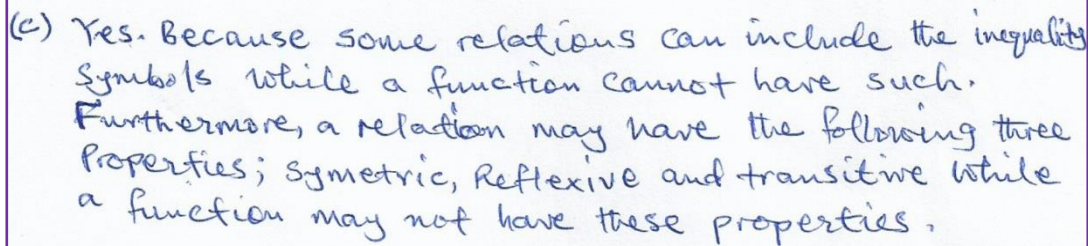 (c) Yes. Because some relations can include the inequality
Symbols while a function cannot have such.
Furthermore, a relation may have the following three
Properties; Symetric, Reflexive and transitive while
a function may not have these properties.